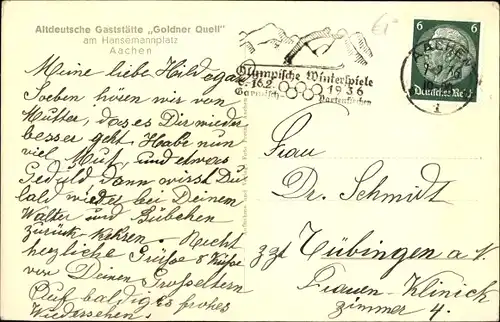 Altdeutsche Gaststätte „Goldner Quell"
am Hansemannplatz
Aachen
Meine liebe Hildegard
Soeben hören wir von
Mutter, das es Dir wieder
besser geht. Habe nun
viel Mut, und etwas
Geduld dann wirst Du
bald wieder bei Deinem
Walter und Bübchen
zurück kehren. Recht
herzliche Grüße & Küsse
von Deinen Großeltern
Auf baldiges frohes
Wiedersehen.
Olympische Winterspiele
6.-16.2. 1936
Garmisch-Partenkirchen
6 6
Deutsches Reich
AACHEN
1
Frau
Dr. Schmidt
zzt Tübingen a. N.
Frauen-Klinick
Zimmer 4.